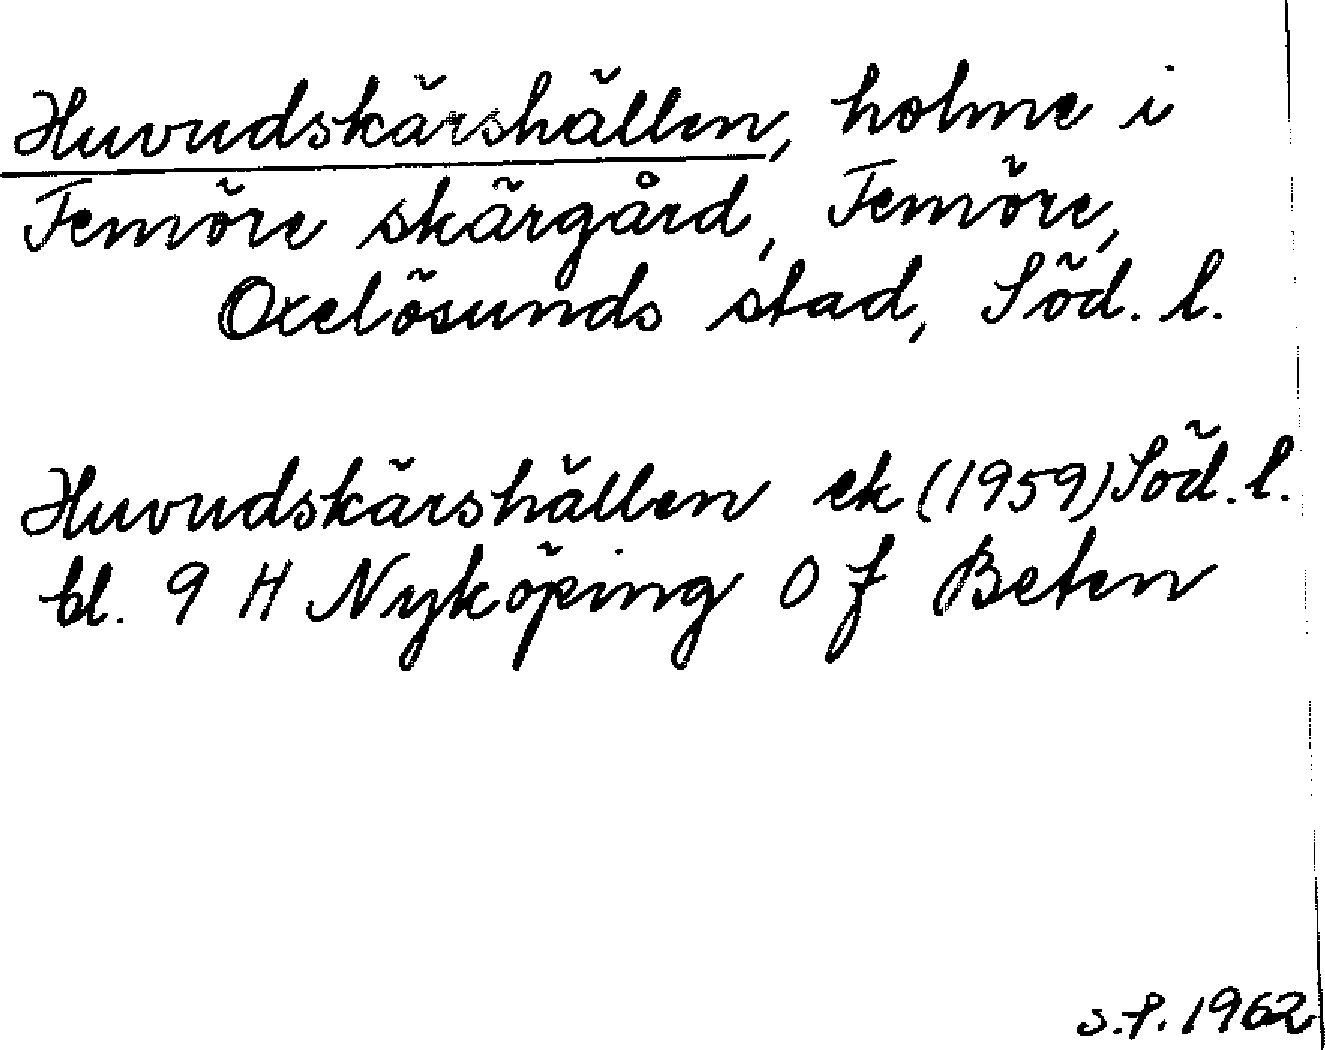 Huvudskärshällen, holme i
Femöre skärgård, Femöre,
Oxelösunds stad, Söd. l.
Huvudskärshällen ek (1959) Söd. l.
bl. 9 H Nyköping 0 f Beten
s.f. 1962